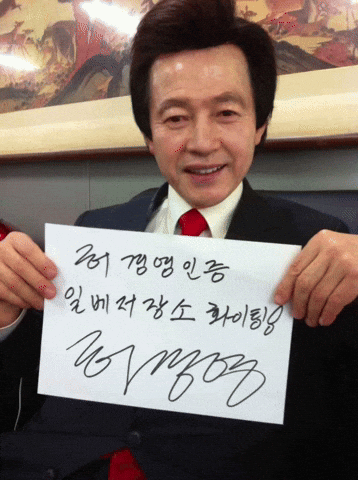 허경영인증
일베저장소 화이팅!
허경영